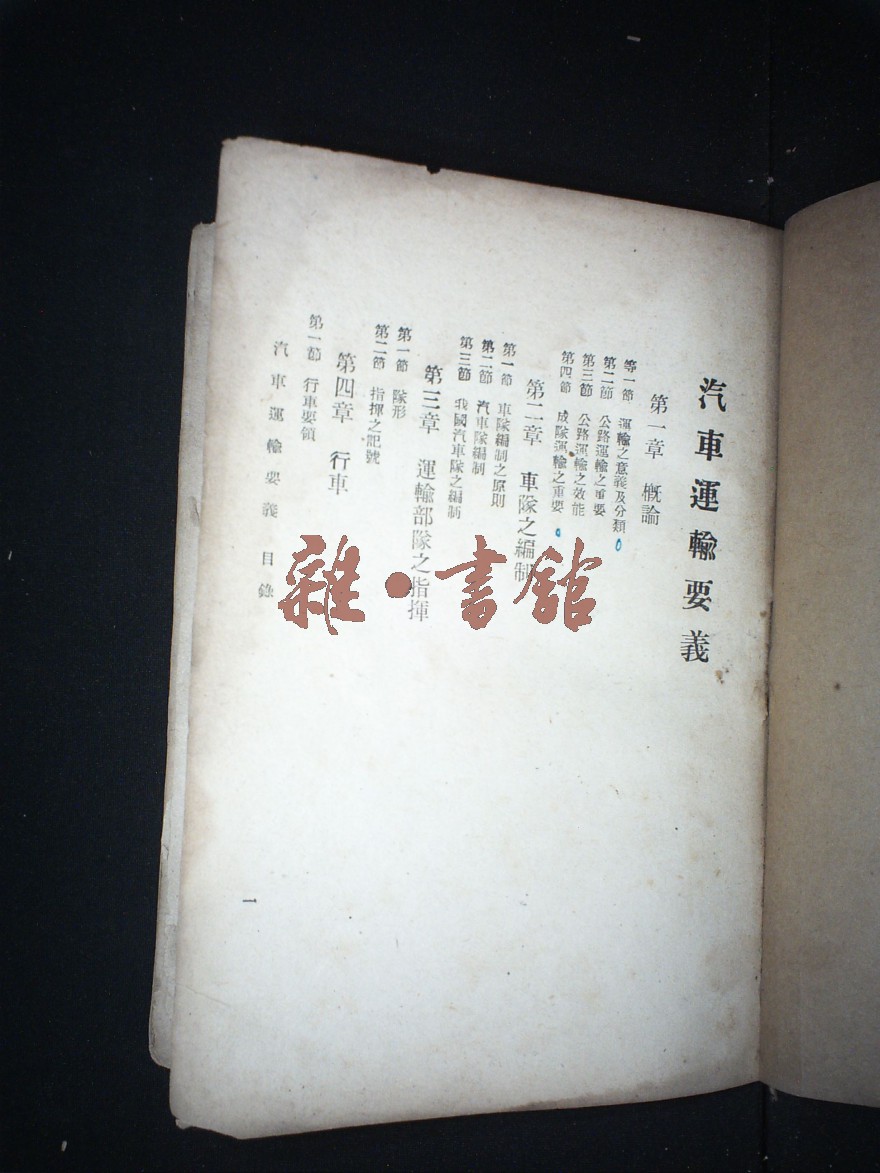 汽車運輸要義
第一章 概論
等一節 運輸之意義及分類
第二節 公路運輸之重要
第三節 公路運輸之效能
第四節 成隊運輸之重要
第二章 車隊之編制
第一節 車隊編制之原則
第二節 汽車隊編制
第三節 我國汽車隊之編制
第三章 運輸部隊之指揮
第一節 隊形
第二節 指揮之記號
第四章 行車
第一節 行車要領
汽車運輸要義 目錄
一
雜·書館